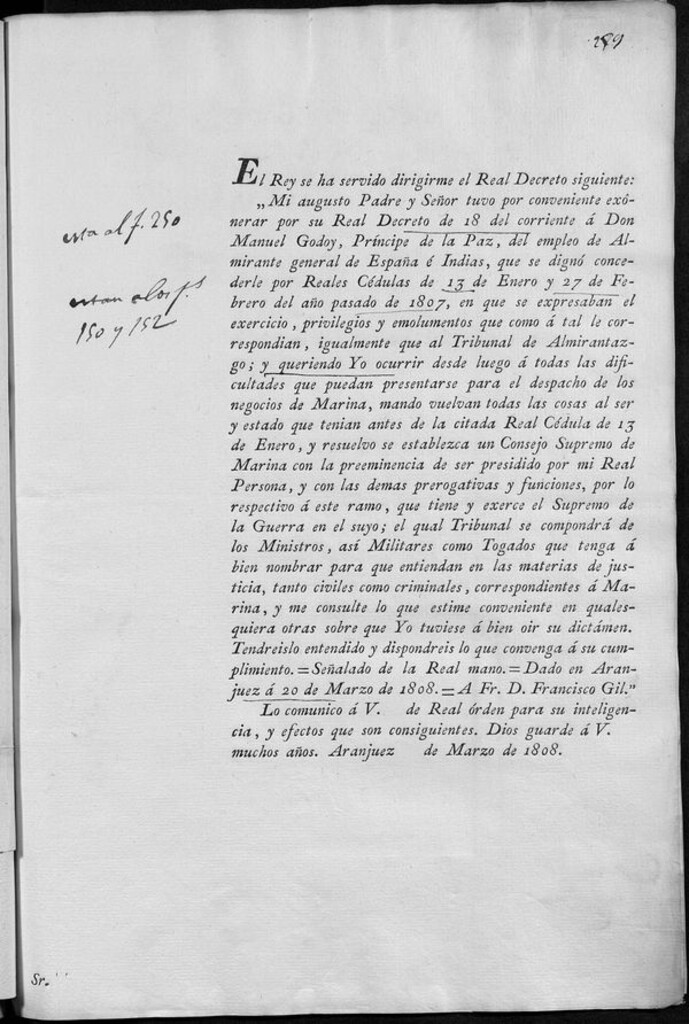 289
El Rey se ha servido dirigirme el Real Decreto siguiente:
„Mi augusto Padre y Señor tuvo por conveniente exô-
nerar por su Real Decreto de 18 del corriente á Don
Manuel Godoy, Príncipe de la Paz, del empleo de Al-
mirante general de España é Indias, que se dignó conce-
derle por Reales Cédulas de 13 de Enero y 27 de Fe-
brero del año pasado de 1807, en que se expresaban el
exercicio, privilegios y emolumentos que como á tal le cor-
respondian, igualmente que al Tribunal de Almirantaz-
go; y queriendo Yo ocurrir desde luego á todas las difi-
cultades que puedan presentarse para el despacho de los
negocios de Marina, mando vuelvan todas las cosas al ser
y estado que tenian antes de la citada Real Cédula de 13
de Enero, y resuelvo se establezca un Consejo Supremo de
Marina con la preeminencia de ser presidido por mi Real
Persona, y con las demas prerogativas y funciones, por lo
respectivo á este ramo, que tiene y exerce el Supremo de
la Guerra en el suyo; el qual Tribunal se compondrá de
los Ministros, así Militares como Togados que tenga á
bien nombrar para que entiendan en las materias de jus-
ticia, tanto civiles como criminales, correspondientes á Ma-
rina, y me consulte lo que estime conveniente en quales-
quiera otras sobre que Yo tuviese á bien oir su dictámen.
Tendreislo entendido y dispondreis lo que convenga á su cum-
plimiento.=Señalado de la Real mano.=Dado en Aran-
juez á 20 de Marzo de 1808.=A Fr. D. Francisco Gil.”
Lo comunico á V. de Real órden para su inteligen-
cia, y efectos que son consiguientes. Dios guarde á V.
muchos años. Aranjuez de Marzo de 1808.
esta al f. 250
estan a los f.s
150 y 152
Sr.